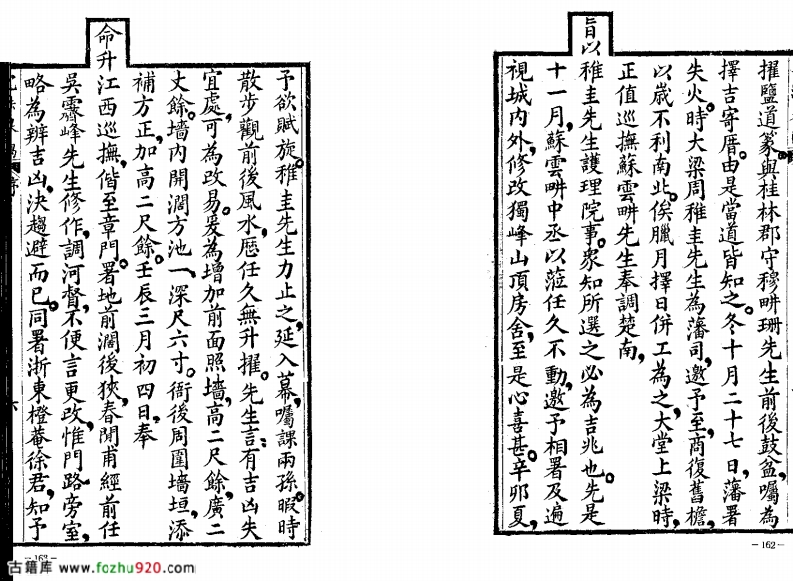 擢鹽道篆。與桂林郡守穆畊珊先生前後鼓盆，囑為
擇吉寄厝。由是當道皆知之。冬十月二十七日，藩署
失火。時大梁周稚圭先生為藩司，邀予至，商復舊檐，
以歲不利南北。俟臘月擇日併工為之，大堂上梁時，
正值巡撫蘇雲畊先生奉調楚南，
旨以稚圭先生護理院事。衆知所選之必為吉兆也。先是
十一月，蘇雲畊中丞以蒞任久不動，邀予相署及遍
視城內外，修改獨峰山頂房舍，至是心喜甚。辛卯夏，
予欲賦旋。稚圭先生力止之，延入幕，囑課兩孫。暇時
散步觀前後風水，歷任久無升擢。先生言：有吉凶失
宜處，可為改易。爰為增加前面照墻，高二尺餘，廣二
丈餘。墻內開濶方池一，深尺六寸。衙後周圍墻垣，添
補方正，加高二尺餘。壬辰三月初四日，奉
命升江西巡撫，偕至章門。署地前濶後狹，春聞甫經前任
吳霱峰先生修作，調河督，不便言更改，惟門路旁室，
略為辨吉凶，決趨避而已。同署浙東橙菴徐君，知予
-162-
-163-
古籍库 www.fozhu920.com